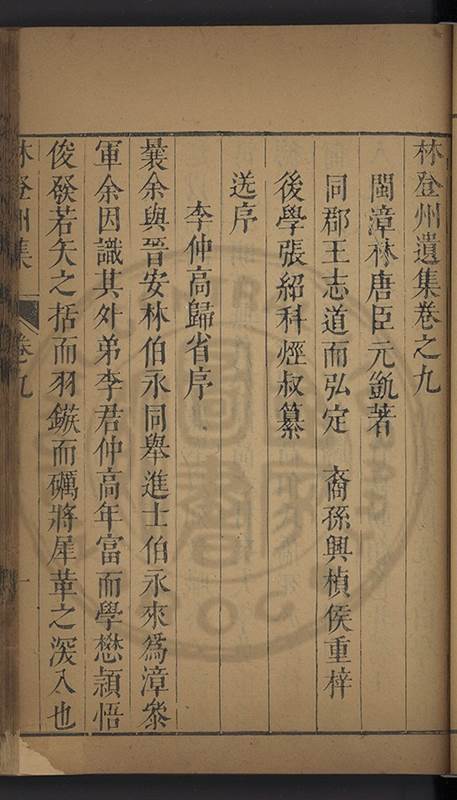 林登州遺集卷之九
閩漳林唐臣元凱著
同郡王志道而弘定　裔孫興楨侯重梓
後學張紹科烴叔纂
送序
李仲高歸省序
曩余與晉安林伯永同舉進士伯永來爲漳叅
軍余因識其外弟李君仲高年富而學懋頴悟
俊發若矢之括而羽鏃而礪將犀革之深入也
林登州集　卷九　一